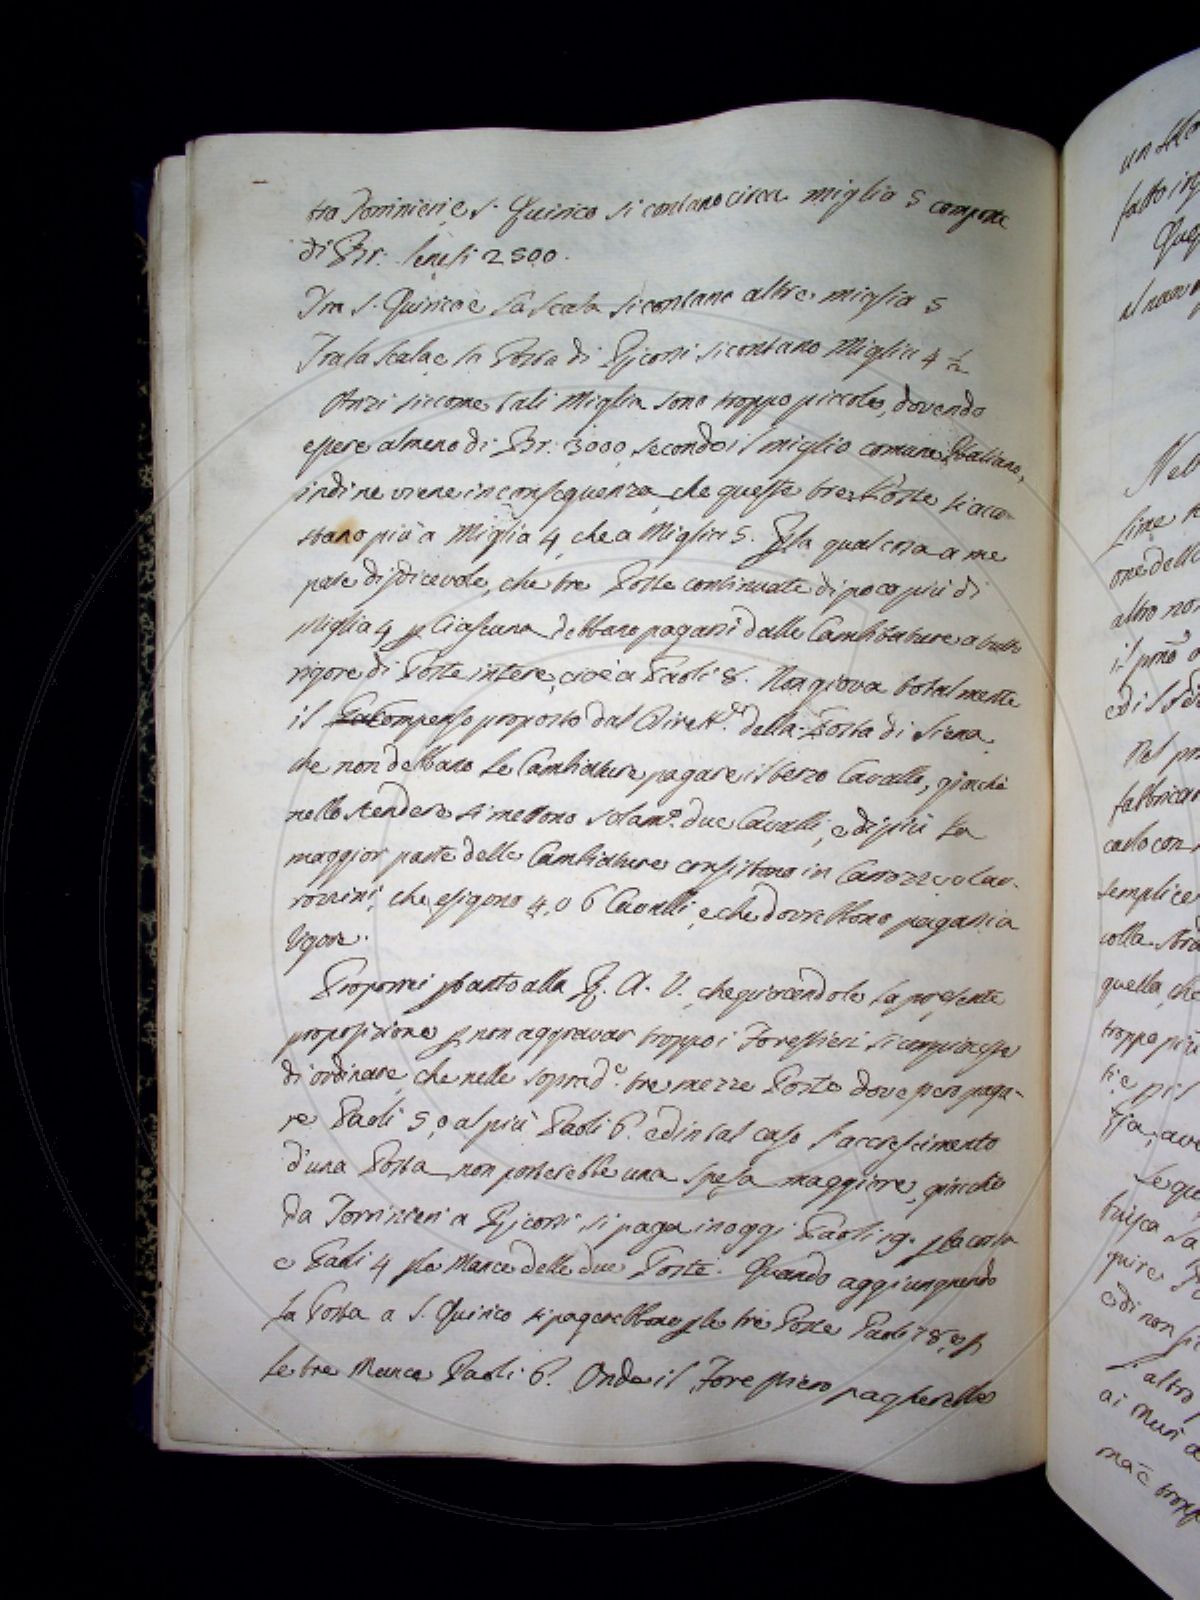 tra Torrinieri e S. Quirico si contano circa miglia 5 composte
di Br: Senesi 2500.
Tra S. Quirico e la Scala si contano altre miglia 5
Tra la Scala e la Posta di Ricorsi si contano Miglia 4 1/2
Anzi siccome tali Miglia sono troppo piccole, dovendo
essere almeno di Br: 3000, secondo il miglio comune Italiano,
indi ne viene in conseguenza, che queste tre Poste si acco-
stano più a Miglia 4, che a Miglia 5. Per la qual cosa a me
pare disdicevole, che tre Poste continuate di poco più di
Miglia 4 p Ciascuna debbano pagarsi dalle Cambiature a tutto
rigore di Poste intere, cioè a Paoli 8. Non giova totalmente
il Compenso proposto dal Dirett.re della Posta di Siena,
che non debbano le Cambiature pagare il terzo Cavallo, giacchè
nello stendere si mettono solam.e due Cavalli, e di più la
maggior parte delle Cambiature consistono in Carrozze o Car-
rozzini, che esigono 4, o 6 Cavalli, e che dovrebbono pagarsi a
rigore.
Proporrei ptanto alla R. A. V., che piacendole la presente
proposizione p non aggravar troppo i Forestieri si compiacesse
di ordinare, che nelle sopred.e tre mezze Poste dovesero paga-
re Paoli 5, o al più Paoli 6. ed in tal caso l'accrescimento
d'una Posta non porterebbe una spesa maggiore, giacchè
da Torrinieri a Ricorsi si paga in oggi Paoli 19. p la corsa
e Paoli 4 p le Mance delle due Poste. Quando aggiungendo
la Posta a S. Quirico si pagerebbono p le tre Poste Paoli 18, e p
le tre Mance Paoli 6. Onde il Forestiero pagherebbe
un
fatto
il nuovo
one delle
altro non
fabbricar
semplice
colla
quella, che
troppo più
Le
altro
ai Muri